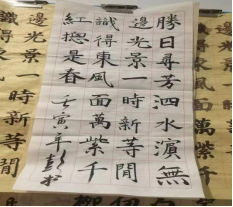 勝日尋芳泗水濱無
邊光景一時新等閒
識得東風面萬紫千
紅摠是春
壬寅年彭
邊光景一時新等閒
識得東風